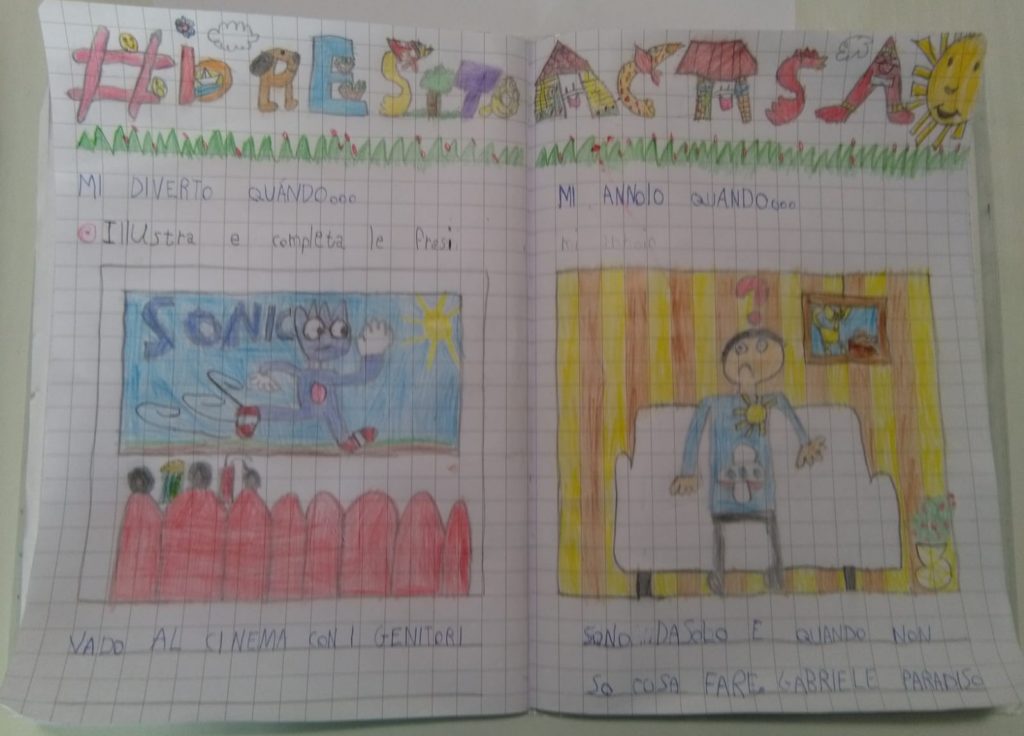 #iORESTO ACASA
MI DIVERTO QUANDO...
Illustra e completa le frasi
SONIC
VADO AL CINEMA CON I GENITORI
MI ANNOIO QUANDO...
mi annoio
?
SONO...DA SOLO E QUANDO NON
SO COSA FARE. GABRIELE PARADISO